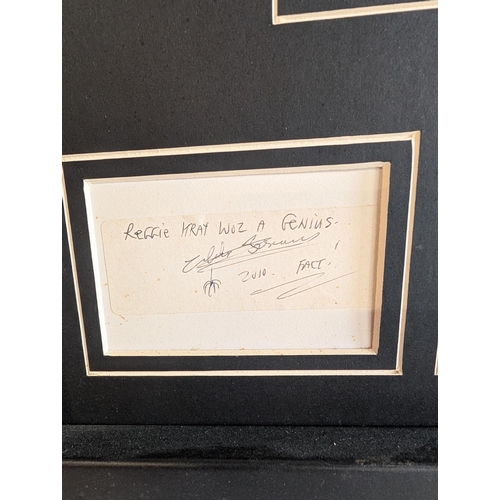 REGGIE KRAY WOZ A GENIUS.
2010. FACT!